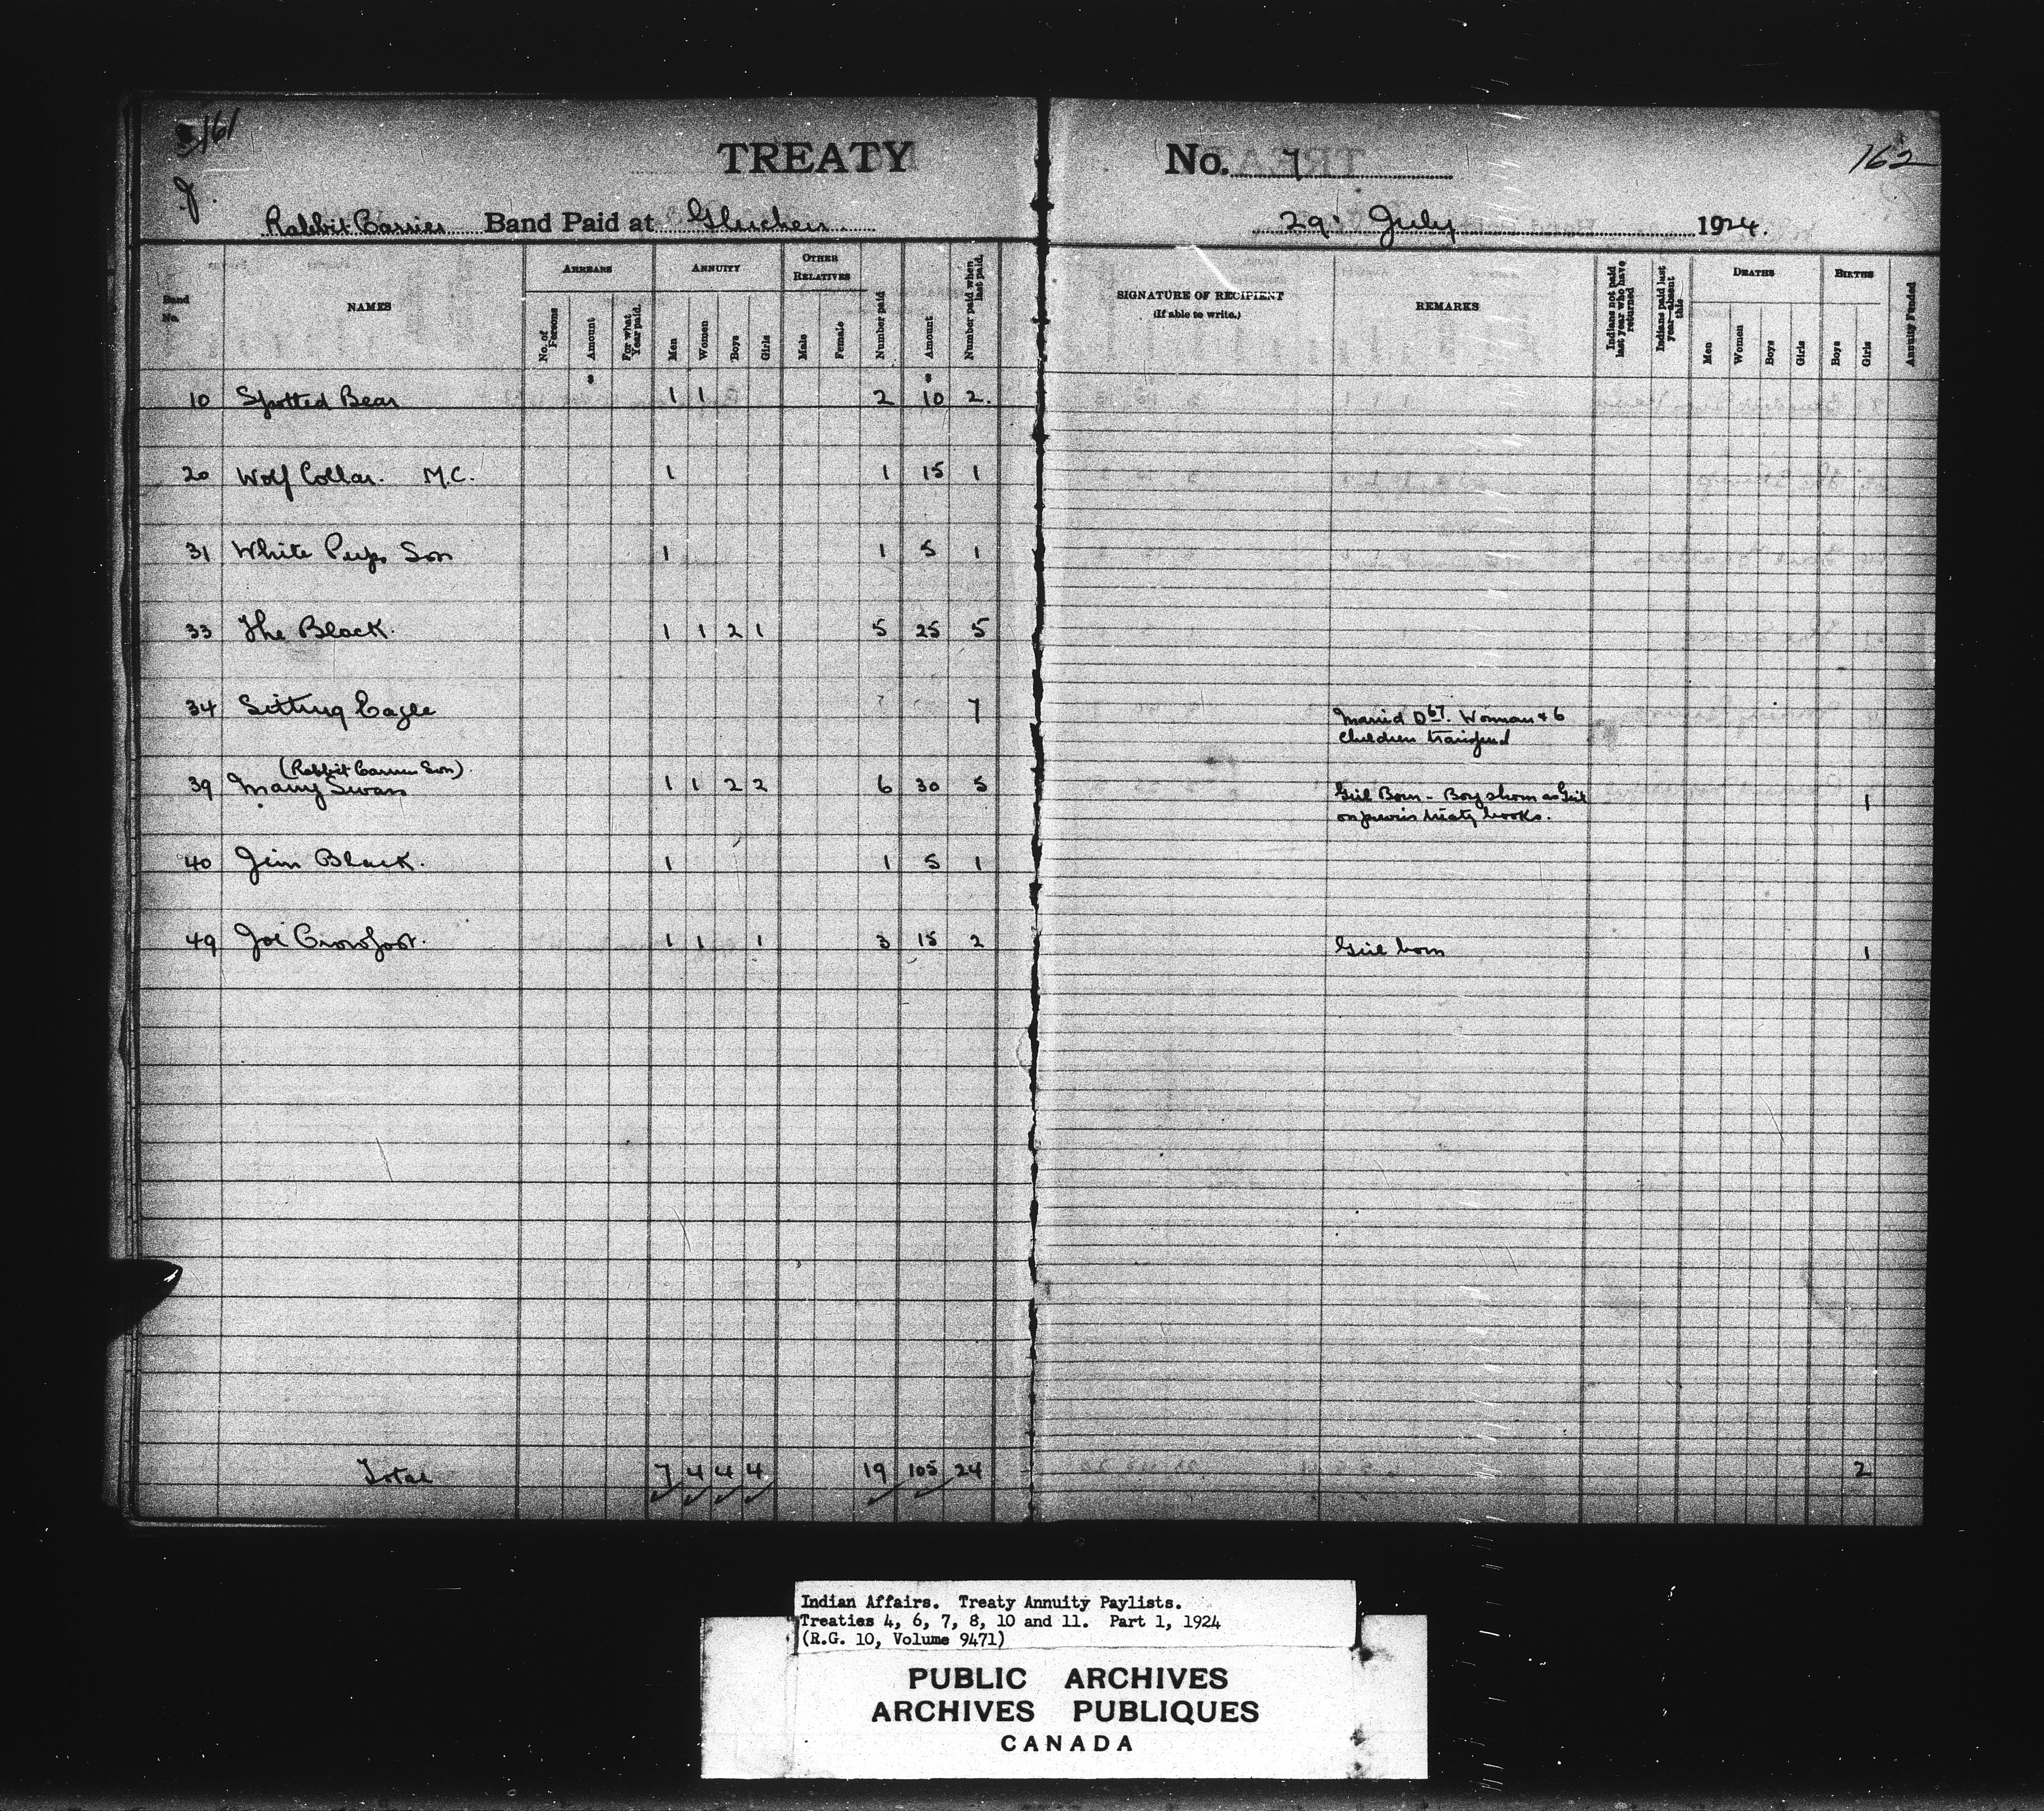 161
J.
TREATY No. 7
162
Rabbit Carrier Band Paid at Gleichen 29 July 1924.
Band No.
NAMES
ARREARS
No. of Persons
Amount
For what Year paid.
ANNUITY
Men
Women
Boys
Girls
OTHER RELATIVES
Male
Female
Number paid
Amount
Number paid when last paid.
SIGNATURE OF RECIPIENT
(If able to write.)
REMARKS
Indians not paid last year who have returned
Indians paid last year—absent this
DEATHS
Men
Women
Boys
Girls
BIRTHS
Boys
Girls
Annuity Funded
$ $
10 Spotted Bear 1 1 2 10 2.
20 Wolf Collar. M.C. 1 1 15 1
31 White Pup Son 1 1 5 1
33 The Black. 1 1 2 1 5 25 5
34 Sitting Eagle 7 Married D 67. Woman & 6
children transferred
(Rabbit Carrier Son).
39 Many Swans 1 1 2 2 6 30 5 Girl Born - Boy shown as Girl 1
on previous treaty books.
40 Jim Black. 1 1 5 1
49 Joe Crowfoot. 1 1 1 3 15 2 Girl born 1
Total 7 4 4 4 19 105 24 2
Indian Affairs. Treaty Annuity Paylists.
Treaties 4, 6, 7, 8, 10 and 11. Part 1, 1924
(R.G. 10, Volume 9471)
PUBLIC ARCHIVES
ARCHIVES PUBLIQUES
CANADA